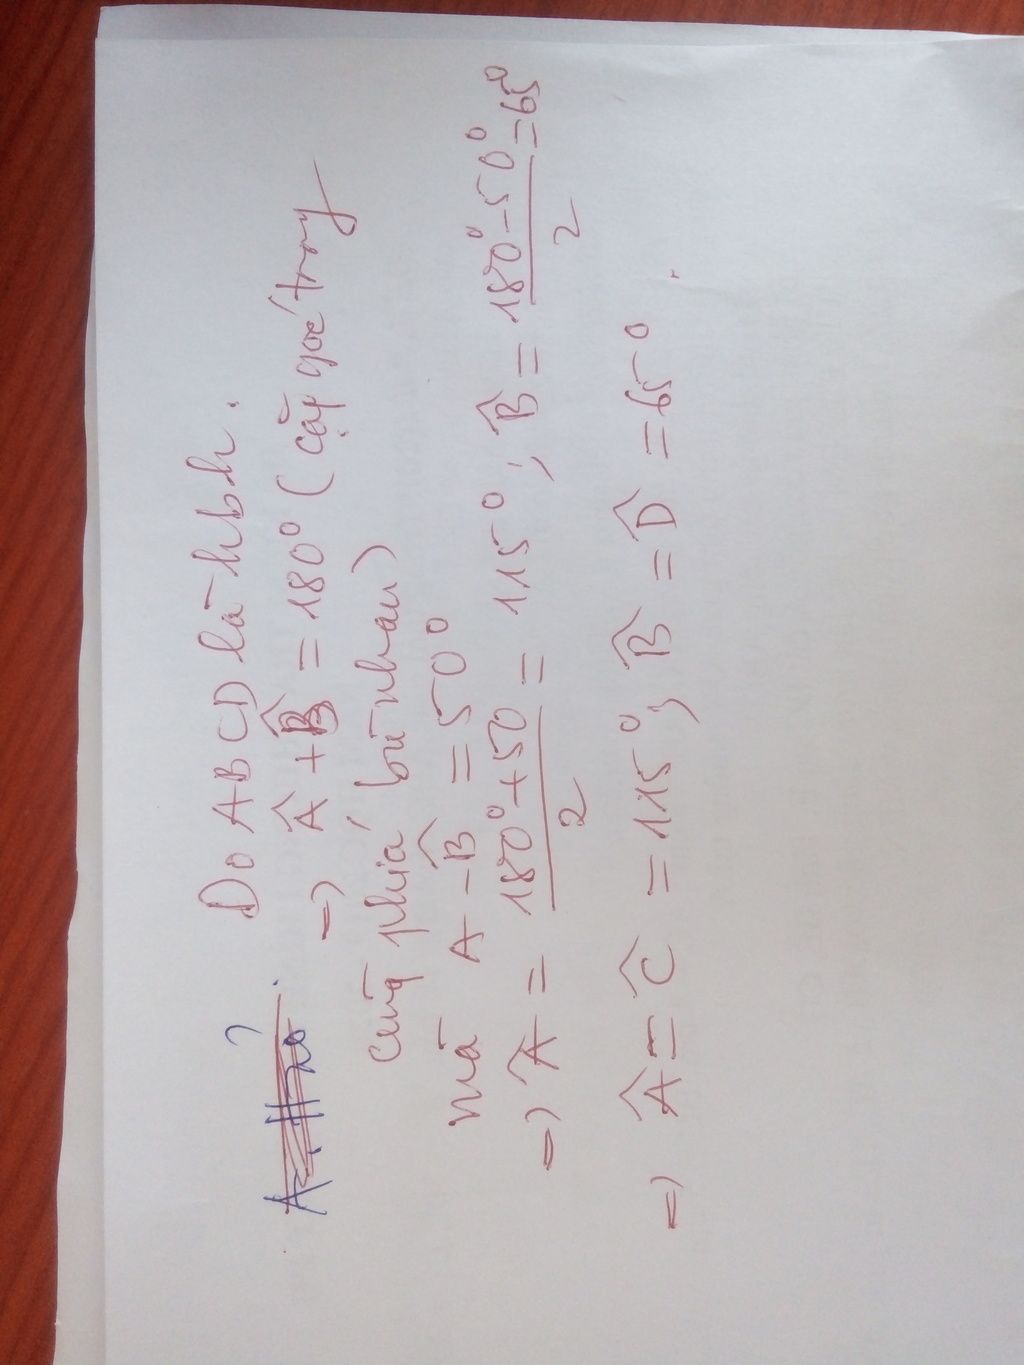 Do ABCD là hbh.
=> Â + B̂ = 180⁰ (cặp góc trong
cùng phía bù nhau)
mà A - B̂ = 50⁰
=> Â = (180⁰ + 50)/2 = 115⁰, B̂ = (180⁰ - 50⁰)/2 = 65⁰
=> Â = Ĉ = 115⁰, B̂ = D̂ = 65⁰.